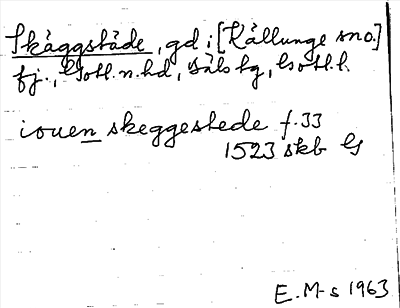 Skäggstäde, gd i [Källunge sno.]
fj., Gotl. n. hd, Dals hg, Gotl. l.
iouen skeggestede f. 33
1523 skb G
E. M-s 1963